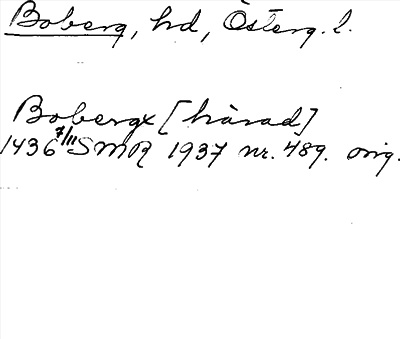 Boberg, hd, Österg. l.
Bobergx [härad]
1436 7/11 SMR 1937 nr. 489. orig.